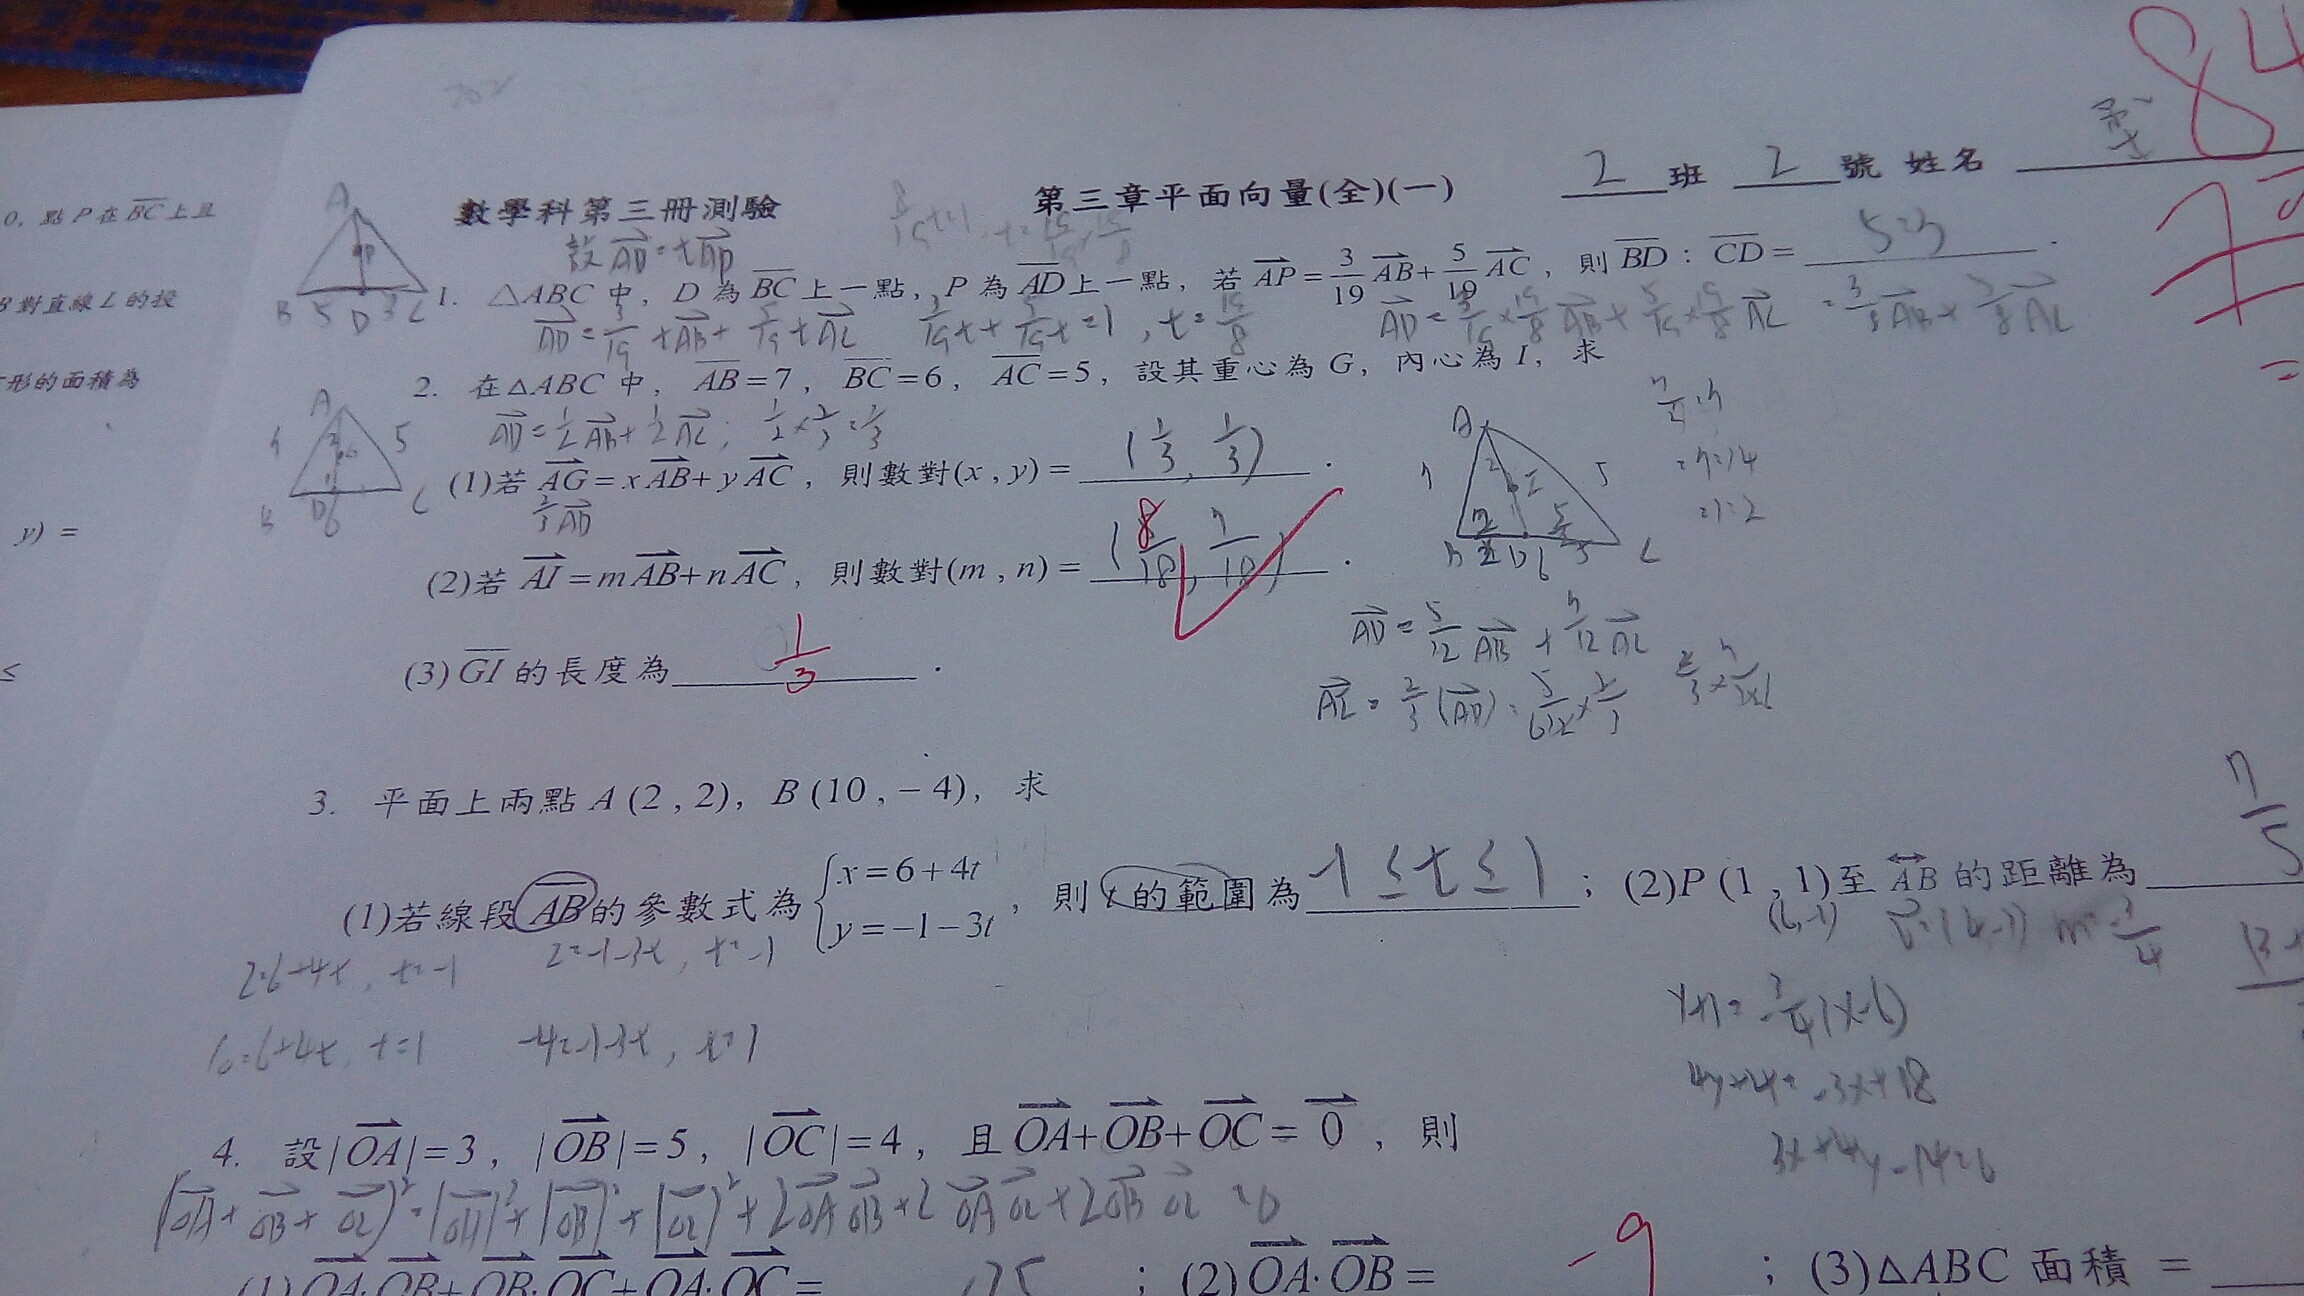 84
0, 點 P 在 BC 上且
B 對直線 L 的投
形的面積為
y) =
≤
數學科第三冊測驗 第三章平面向量(全)(一) 2 班 2 號 姓名
設 AD = tAP
1. △ABC 中, D 為 BC 上一點, P 為 AD 上一點, 若 AP = 3/19 AB + 5/19 AC, 則 BD : CD = 5:3.
A
P
B 5 D 3 C
AD = 3/19 tAB + 5/19 tAC 3/19 t + 5/19 t = 1, t = 19/8 AD = 3/19 × 19/8 AB + 5/19 × 19/8 AC = 3/8 AB + 5/8 AC
2. 在 △ABC 中, AB = 7, BC = 6, AC = 5, 設其重心為 G, 內心為 I, 求
AD = 1/2 AB + 1/2 AC; 1/2 × 2/3 = 1/3
A
7 5
B D 6 C
(1)若 AG = xAB + yAC, 則數對(x , y) = (1/3, 1/3).
2/3 AD
(2)若 AI = mAB + nAC, 則數對(m , n) = (8/18, 7/18).
A
7 2 I 5
B D 6 C
AD = 5/12 AB + 7/12 AC
(3) GI 的長度為 1/3.
3. 平面上兩點 A (2 , 2), B (10 , − 4), 求
(1)若線段 AB 的參數式為 { x = 6 + 4t y = −1 − 3t, 則 t 的範圍為 -1 ≤ t ≤ 1; (2)P (1 , 1)至 AB 的距離為 7/5
2=6+4t, t=-1 2=-1-3t, t=-1
10=6+4t, t=1 -4=-1-3t, t=1
y+1 = -3/4 (x-6)
4y+4 = -3x+18
3x+4y-14=0
4. 設 |OA| = 3, |OB| = 5, |OC| = 4, 且 OA + OB + OC = 0, 則
(OA + OB + OC)² = |OA|² + |OB|² + |OC|² + 2OA OB + 2OA OC + 2OB OC = 0
(1) OA·OB + OB·OC + OA·OC = -25; (2) OA·OB = -9; (3)△ABC 面積 =